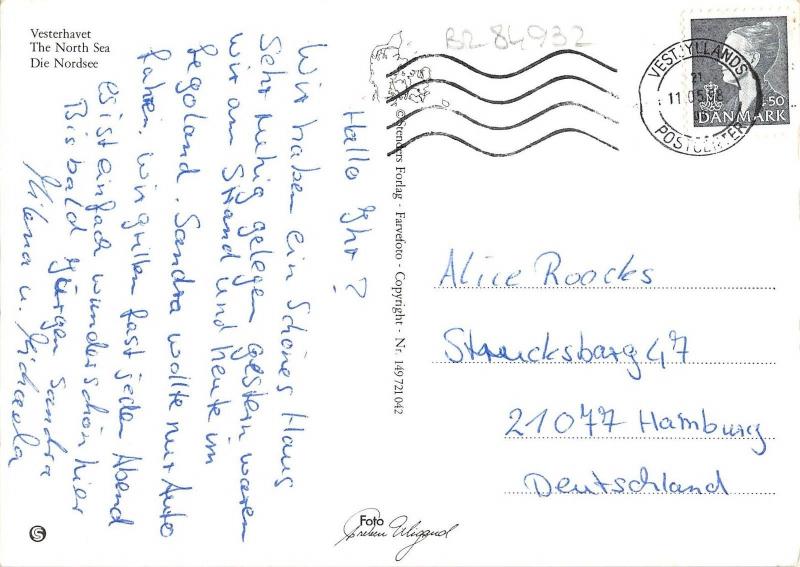 Vesterhavet
The North Sea
Die Nordsee
BZ 84932
VESTJYLLANDS
21
11.05.98
POSTCENTER
50
DANMARK
Hallo Ihr?
Wir haben ein Schönes Haus
Sehr ruhig gelegen gestern waren
wir am Strand und heute im
Legoland. Sandra wollte nur Auto
fahren, wir grillen fast jeden Abend
es ist einfach wunderschön hier
Bis bald Jürgen Sandra
Milena u. Michaela
© Stenders Forlag - Farvefoto - Copyright - Nr. 149 721 042
Alice Roocks
Strucksbarg 47
21077 Hamburg
Deutschland
Foto
S